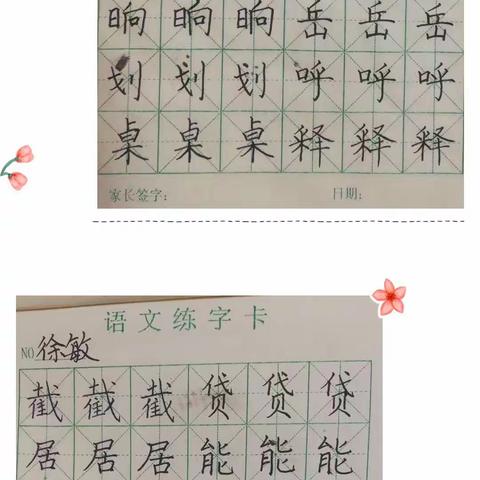 晌 晌 晌 岳 岳 岳
划 划 划 呼 呼 呼
桌 桌 桌 释 释 释
家长签字: 日期:
语文练字卡
NO 徐敏
截 截 截 贷 贷 贷
居 居 居 能 能 能